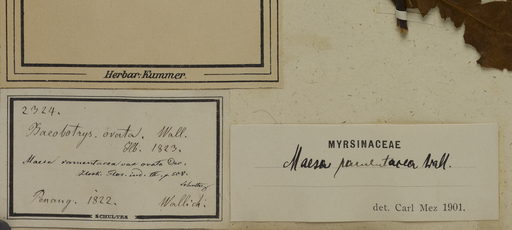 Herbar: Kummer.
2324.
Baeobotrys. ovata. Wall.
Hb. 1823.
Maesa ramentacea var ovata Dec.
Hook. Flor. ind. III p 508.
Penang. 1822. Wallich.
SCHULTES
MYRSINACEAE
Maesa ramentacea Wall.
det. Carl Mez 1901.